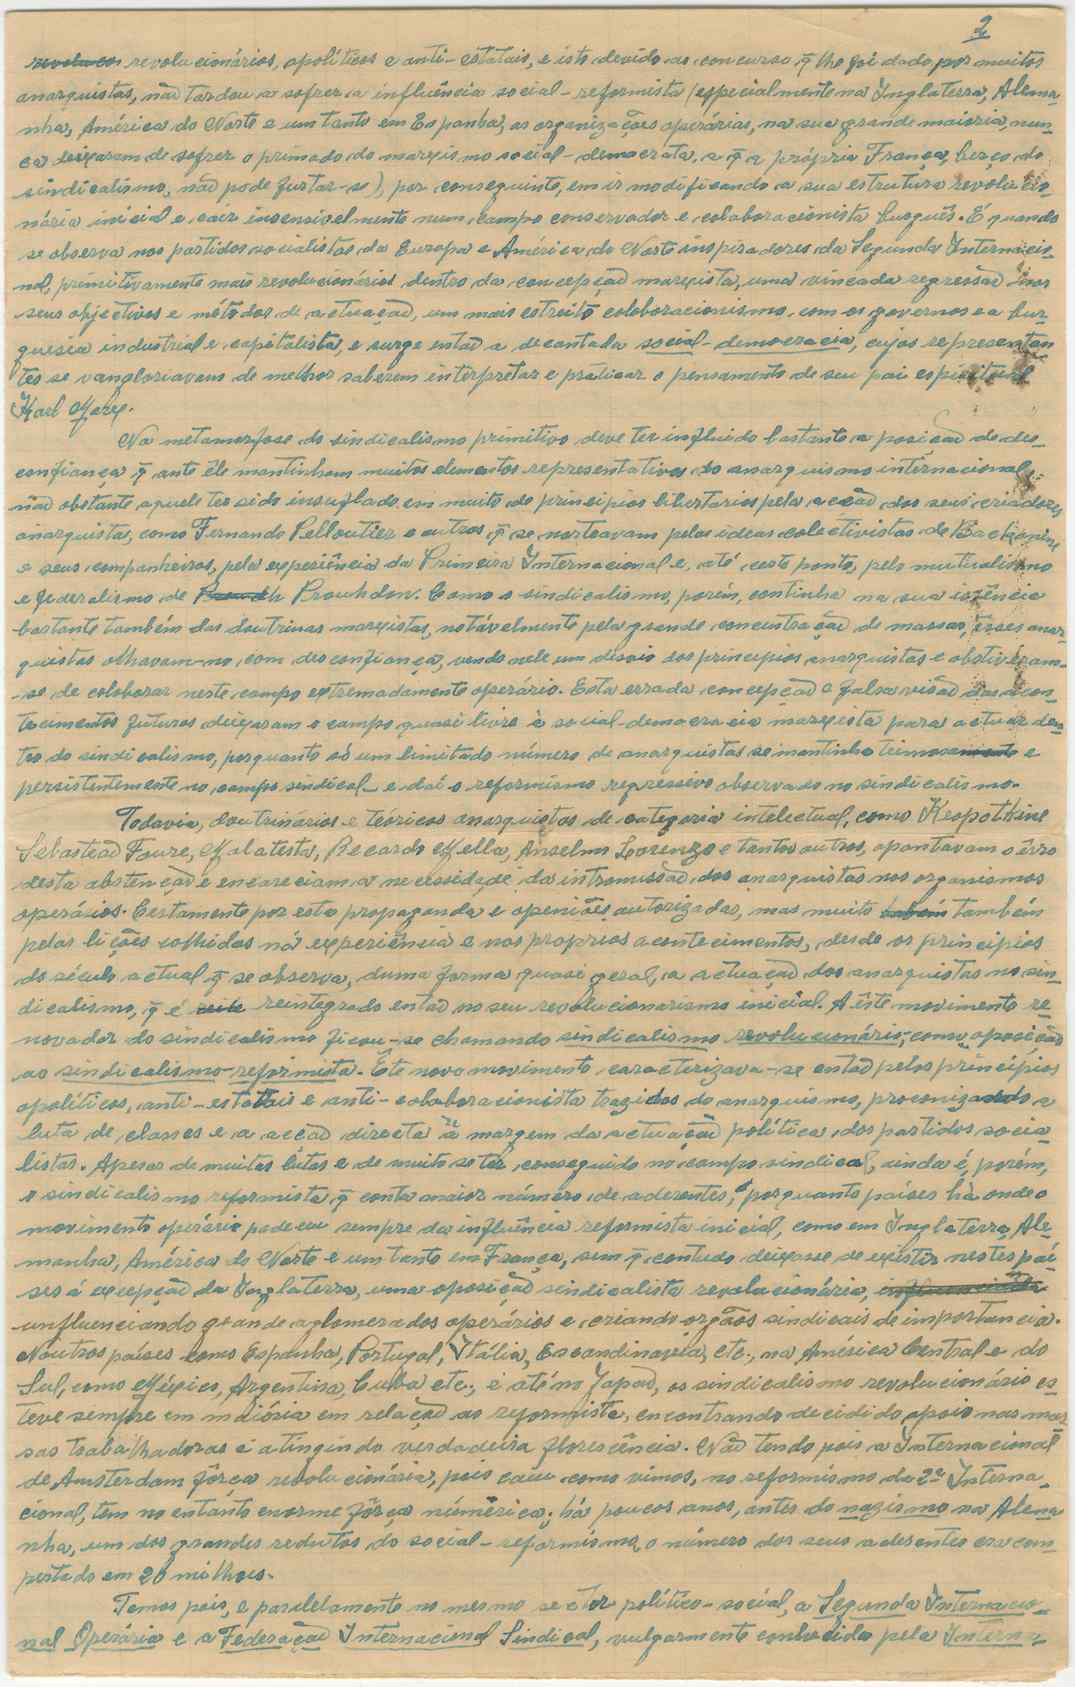 2
revoluco revolucionários, apolíticos e anti-estatais, e isto devido ao concurso q̃ lhe foi dado por muitos
anarquistas, não tardou a sofrer a influência social-reformista (especialmente na Inglaterra, Alema-
nha, América do Norte e um tanto em Espanha, as organizações operárias, na sua grande maioria, nun-
ca deixaram de sofrer o primado do marxismo social-democrata, a q̃ a própria França, berço do
sindicalismo, não pode furtar-se), por conseguinte, em ir modificando a sua estrutura revolucio-
nária inicial e cair insensivelmente num campo conservador e colaboracionista burguês. É quando
se observa nos partidos socialistas da Europa e América do Norte inspiradores da Segunda Internacio-
nal, primitivamente mais revolucionários dentro da concepção marxista, uma vincada regressão nos
seus objectivos e métodos de actuação, um mais estreito colaboracionismo com os governos e a bur-
guesia industrial e capitalista, e surge então a decantada social-democracia, cujos representan
tes se vangloriavam de melhor saberem interpretar e praticar o pensamento de seu pai espiritual
Karl Marx.
Na metamorfose do sindicalismo primitivo deve ter influido bastante a posição de des-
confiança q̃ ante êle mantinham muitos elementos representativos do anarquismo internacional,
não obstante aquele ter sido insuflado em muito do principios libertarios pela acção dos seus criadores
anarquistas, como Fernando Pelloutier e outros, q̃ se norteavam pelas ideas colectivistas de Backonine
e seus companheiros, pela experiência da Primeira Internacional e, até certo ponto, pelo mutualismo
e federalismo de Proudh Proudhon. Como o sindicalismo, porém, continha na sua essência
bastante também das doutrinas marxistas, notávelmente pela grande concentração de massas, esses anar-
quistas olhavam-no com desconfiança, vendo nele um desvio dos principios anarquistas e abstiveram-
-se de colaborar neste campo extremadamente operário. Esta errada concepção e falsa visão dos acon-
tecimentos futuros deixaram o campo quasi livre à social-democracia marxista para actuar den-
tro do sindicalismo, porquanto só um limitado número de anarquistas se mantinha e
persistentemente no campo sindical e daí o reformismo regressivo observado no sindicalismo.
Todavia, doutrinarios e teóricos anarquistas de categoria intelectual, como Kropotkine
Sebastião Faure, Malatesta, Recardo Mella, Anselmo Lorenzo e tantos outros, apontavam o êrro
desta abstenção e encareciam a necessidade da intromissão dos anarquistas nos organismos
operários. Certamente por esta propaganda e openiões autorizadas, mas muito também
pelas lições colhidas na experiência e nos proprios acontecimentos, desde os principios
do século actual q̃ se observa, duma forma quasi geral, a actuação dos anarquistas no sin-
dicalismo, q̃ é reintegrado então no seu revolucionarismo inicial. A êste movimento re-
novador do sindicalismo ficou-se chamando sindicalismo revolucionário, como oposição
ao sindicalismo-reformista. Êste novo movimento caracterizava-se então pelos princípios
apolíticos, anti-estatais e anti-colaboracionista trazidos do anarquismo, preconizando a
luta de classes e a acção directa à margem da actuação política dos partidos socia-
listas. Apesar de muitas lutas e de muito se ter conseguido no campo sindical, ainda é, porém,
o sindicalismo reformista q̃ conta maior número de aderentes, porquanto países há onde o
movimento operário padeceu sempre da influência reformista inicial, como em Inglaterra, Ale-
manha, América do Norte e um tanto em França, sem q̃ contudo deixasse de existir nestes paí-
ses á excepção da Inglaterra, uma oposição sindicalista revolucionária,
unfluenciando grande aglomerados operários e criando orgãos sindicais de importancia.
Noutros países como Espanha, Portugal, Itália, Escandinavia, etc., na América Central e do
Sul, como México, Argentina, Cuba etc., e até no Japão, os sindicalismo revolucionário es-
teve sempre em maioria em relação ao reformista, encontrando decidido apoio nas mas-
sas trabalhadoras e atingindo verdadeira florescência. Não tendo pois a Internacional
de Amsterdam fôrça revolucionária, pois caiu como vimos, no reformismo da 2ª Interna-
cional, tem no entanto enorme fôrça númérica; há poucos anos, antes do nazismo na Alema-
nha, um dos grandes redutos do social-reformismo, o número dos seus aderentes era com-
putado em 20 milhões.
Temos pois, e paralelamente no mesmo sector político-social, a Segunda Internacio-
nal Operária e a Federação Internacional Sindical, vulgarmente conhecida pela Interna-